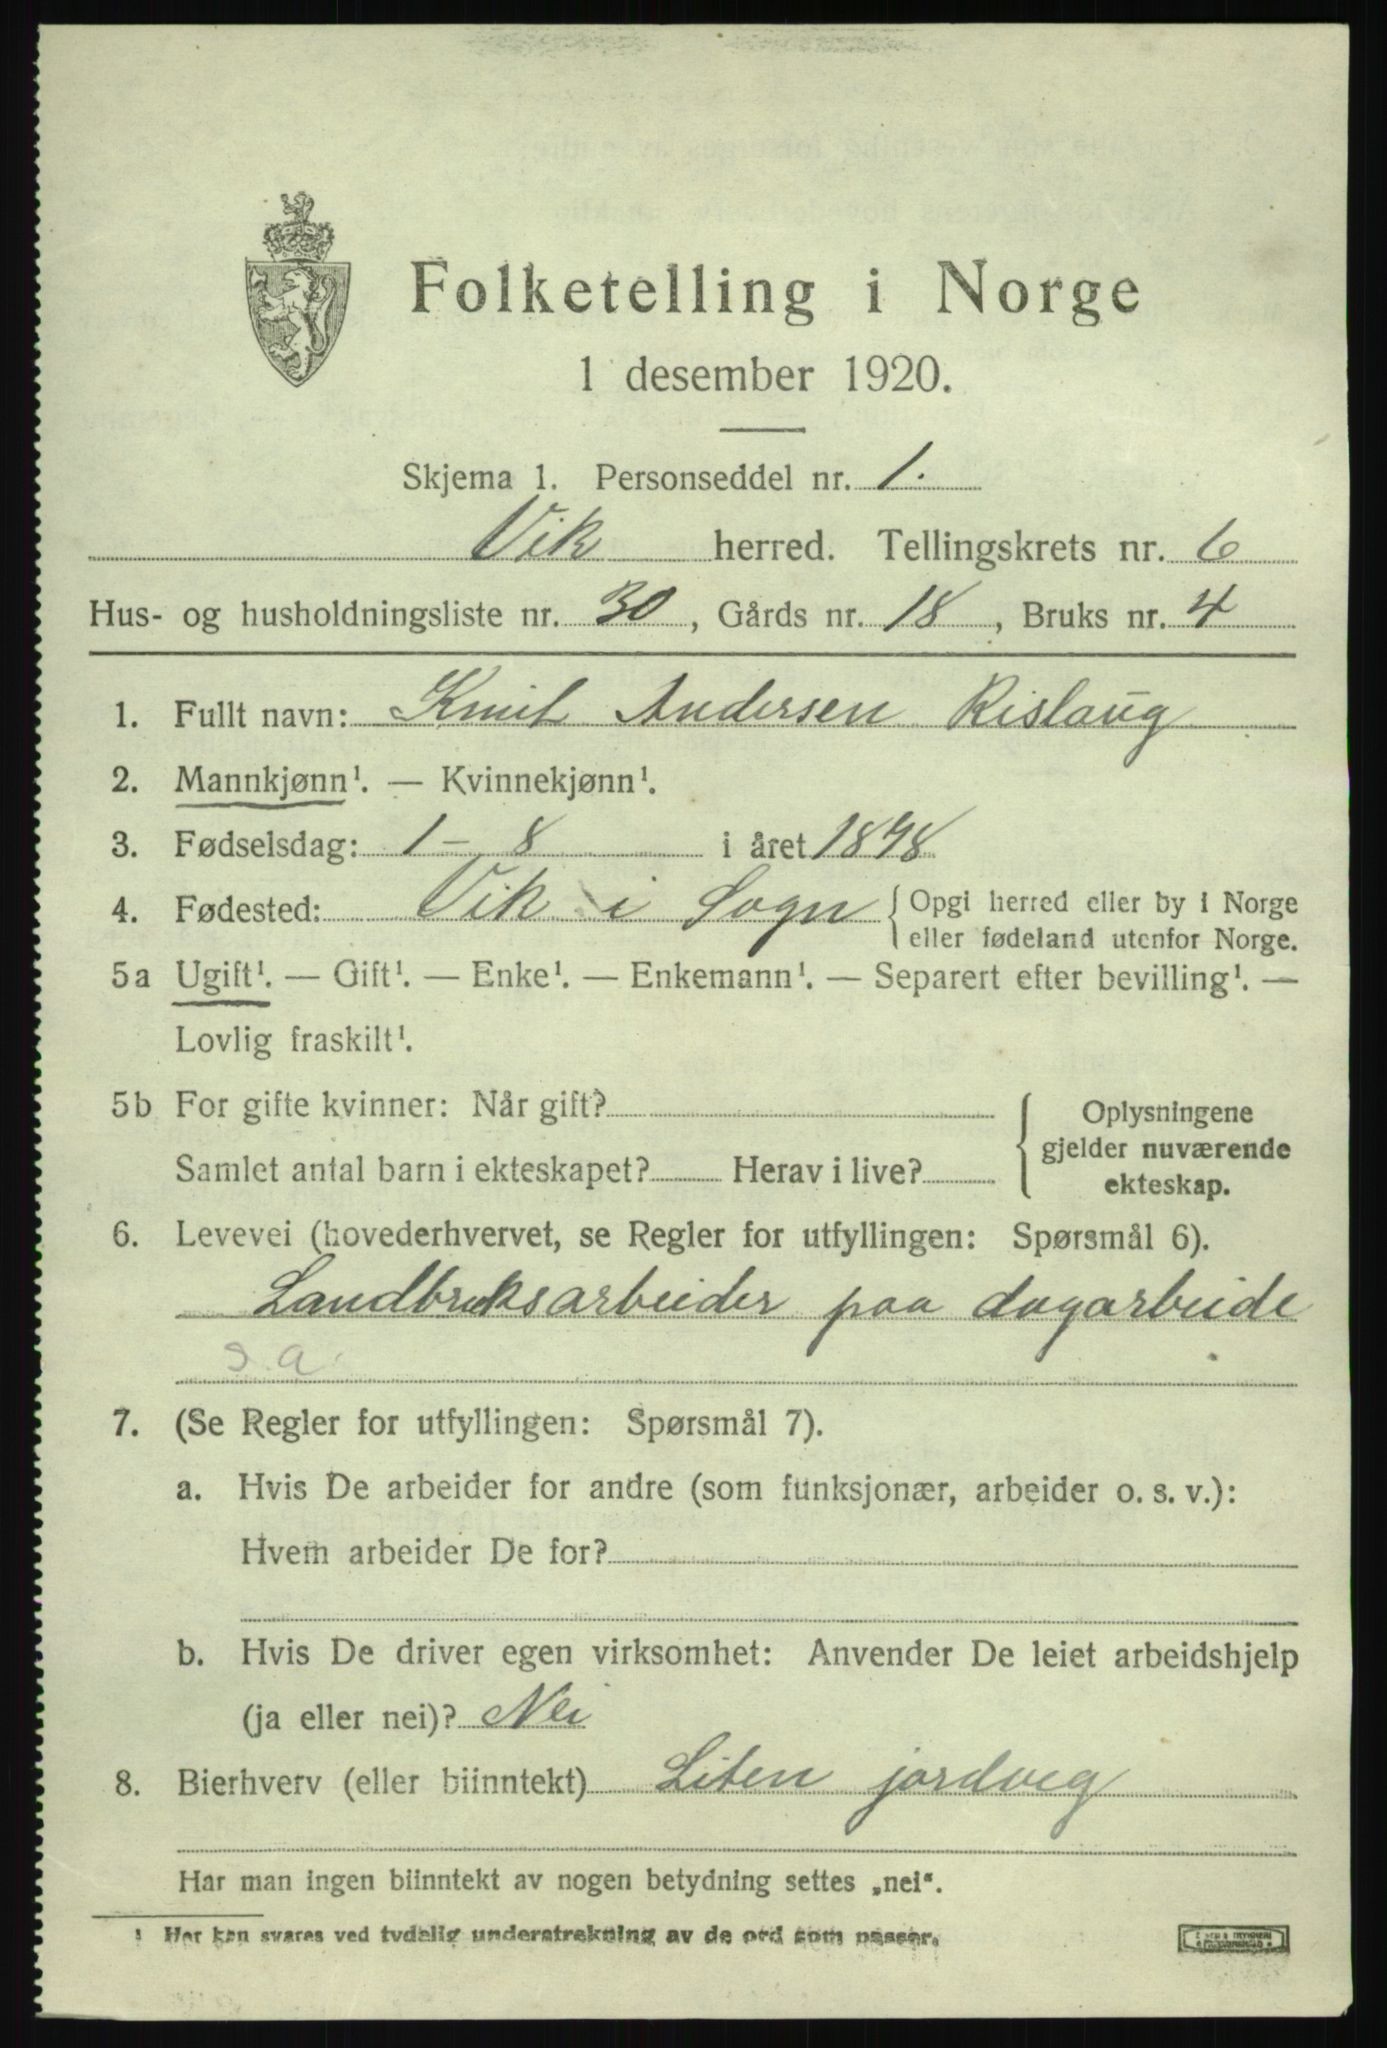 Folketelling i Norge
1 desember 1920.
Skjema 1. Personseddel nr. 1.
Vik herred. Tellingskrets nr. 6
Hus- og husholdningsliste nr. 30, Gårds nr. 18, Bruks nr. 4
1. Fullt navn: Knut Andersen Rislaug
2. Mannkjønn¹. — Kvinnekjønn¹.
3. Fødselsdag: 1 - 8 i året 1898
4. Fødested: Vik i Sogn { Opgi herred eller by i Norge
eller fødeland utenfor Norge.
5a Ugift¹. — Gift¹. — Enke¹. — Enkemann¹. — Separert efter bevilling¹. —
Lovlig fraskilt¹.
5b For gifte kvinner: Når gift?
Samlet antal barn i ekteskapet? Herav i live?
{ Oplysningene
gjelder nuværende
ekteskap.
6. Levevei (hovederhvervet, se Regler for utfyllingen: Spørsmål 6).
Landbruksarbeider paa dagarbeide
s.a.
7. (Se Regler for utfyllingen: Spørsmål 7).
a. Hvis De arbeider for andre (som funksjonær, arbeider o. s. v.):
Hvem arbeider De for?
b. Hvis De driver egen virksomhet: Anvender De leiet arbeidshjelp
(ja eller nei)? Nei
8. Bierhverv (eller biinntekt) Liten jordveg
Har man ingen biinntekt av nogen betydning settes „nei“.
¹ Her kan svares ved tydelig understrekning av de ord som passer.